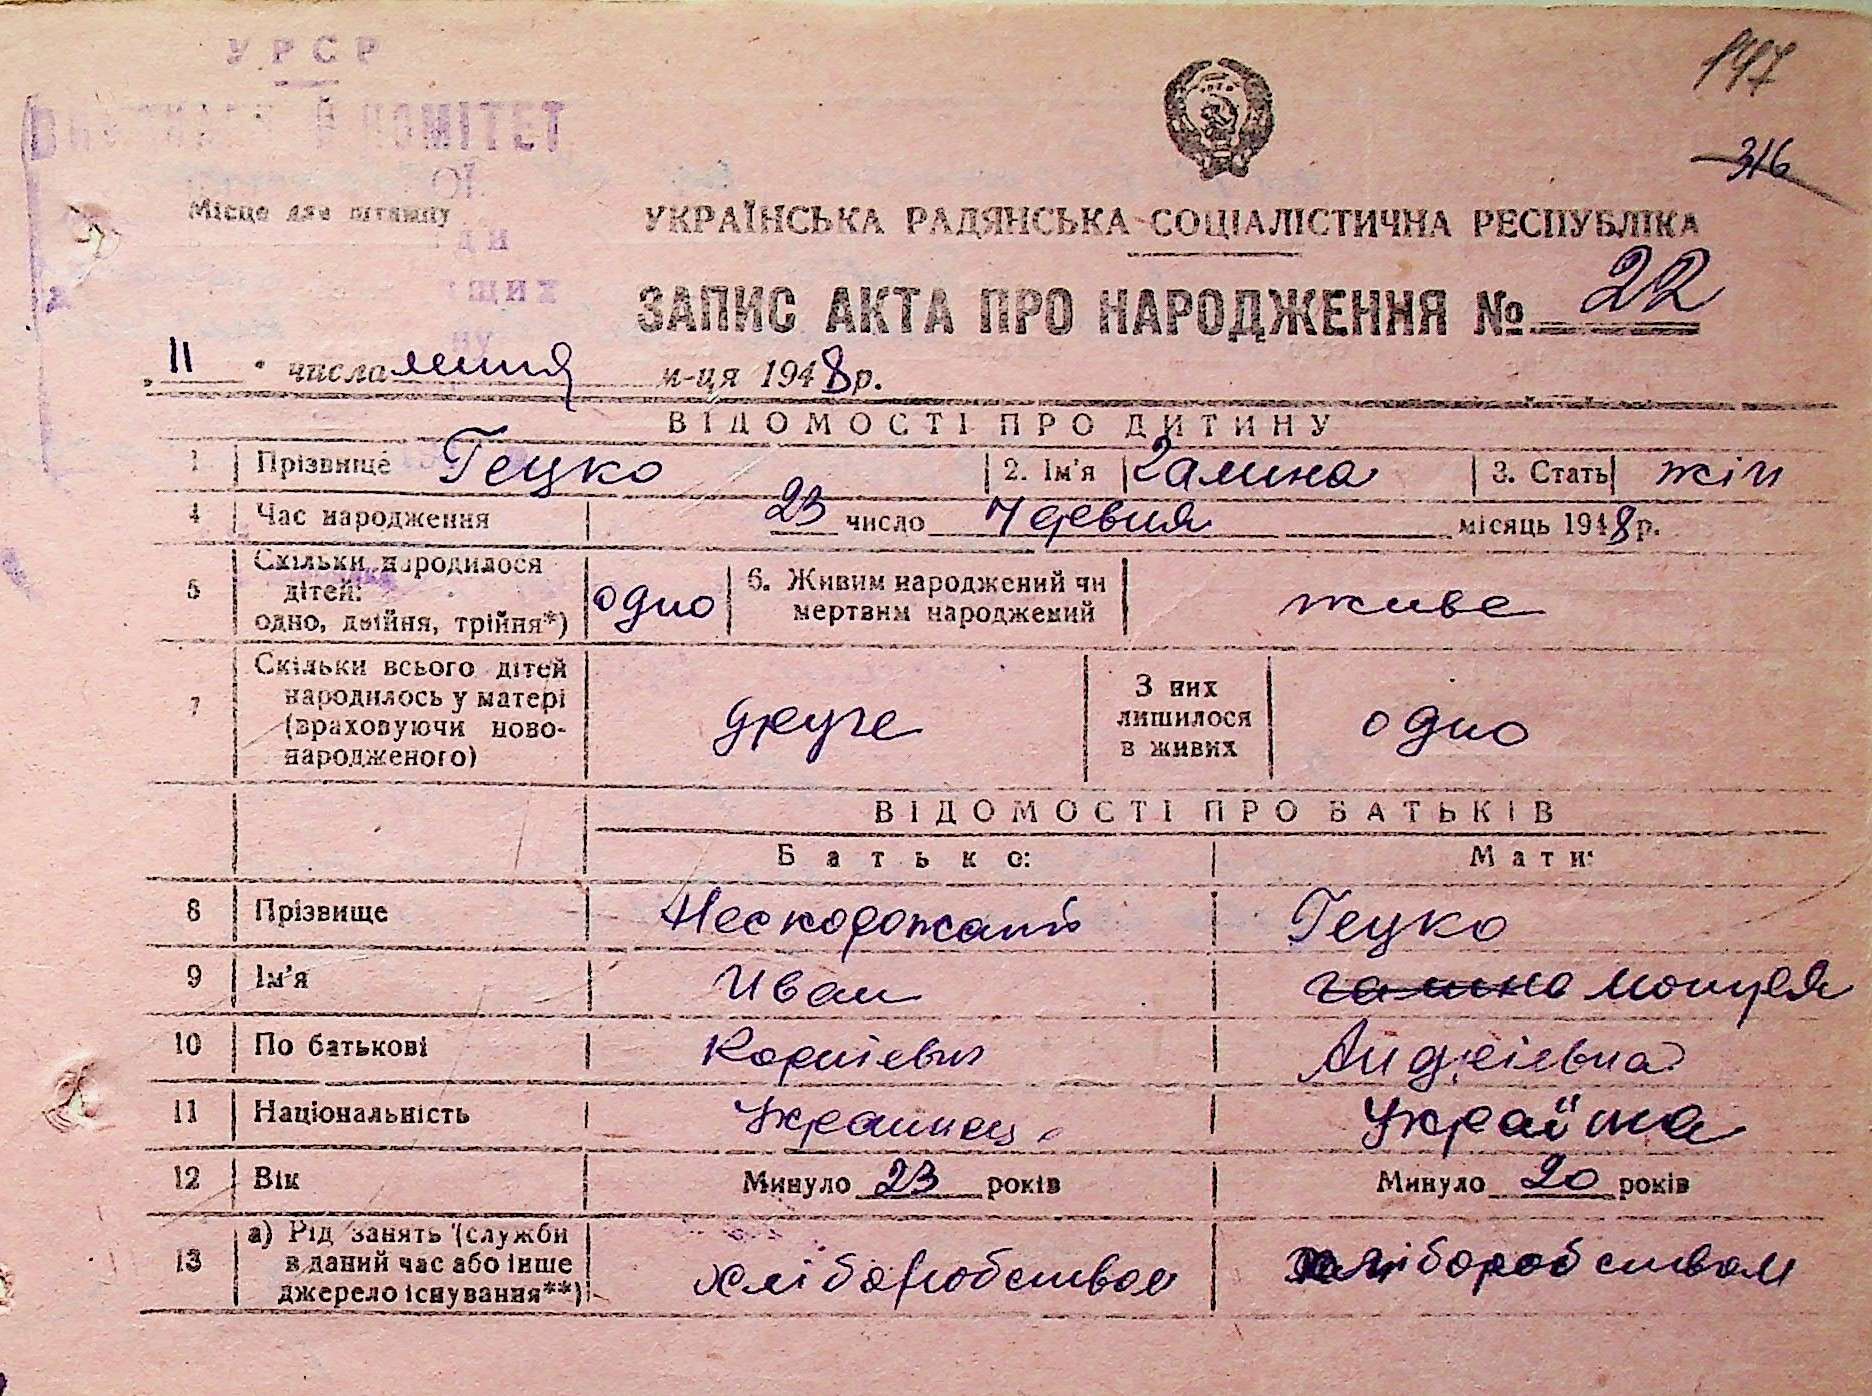 УРСР
КОМІТЕТ
Місце для штампу
147
316
УКРАЇНСЬКА РАДЯНСЬКА СОЦІАЛІСТИЧНА РЕСПУБЛІКА
ЗАПИС АКТА ПРО НАРОДЖЕННЯ № 22
„11" числа липня м-ця 1948 р.
ВІДОМОСТІ ПРО ДИТИНУ
1 Прізвище Гецко 2. Ім'я Галина 3. Стать жін
4 Час народження 23 число Червня місяць 1948 р.
5 Скільки народилося дітей: одно, двійня, трійня*) одно 6. Живим народжений чи мертвим народжений живе
7 Скільки всього дітей народилось у матері (враховуючи новонародженого) друге З них лишилося в живих одно
ВІДОМОСТІ ПРО БАТЬКІВ
Батько: Мати:
8 Прізвище Гецко
9 Ім'я Иван
10 По батькові Андріївна
11 Національність Украинец Україна
12 Вік Минуло 23 років Минуло 20 років
13 а) Рід занять (служби в даний час або інше джерело існування**) хліборобством хліборобством